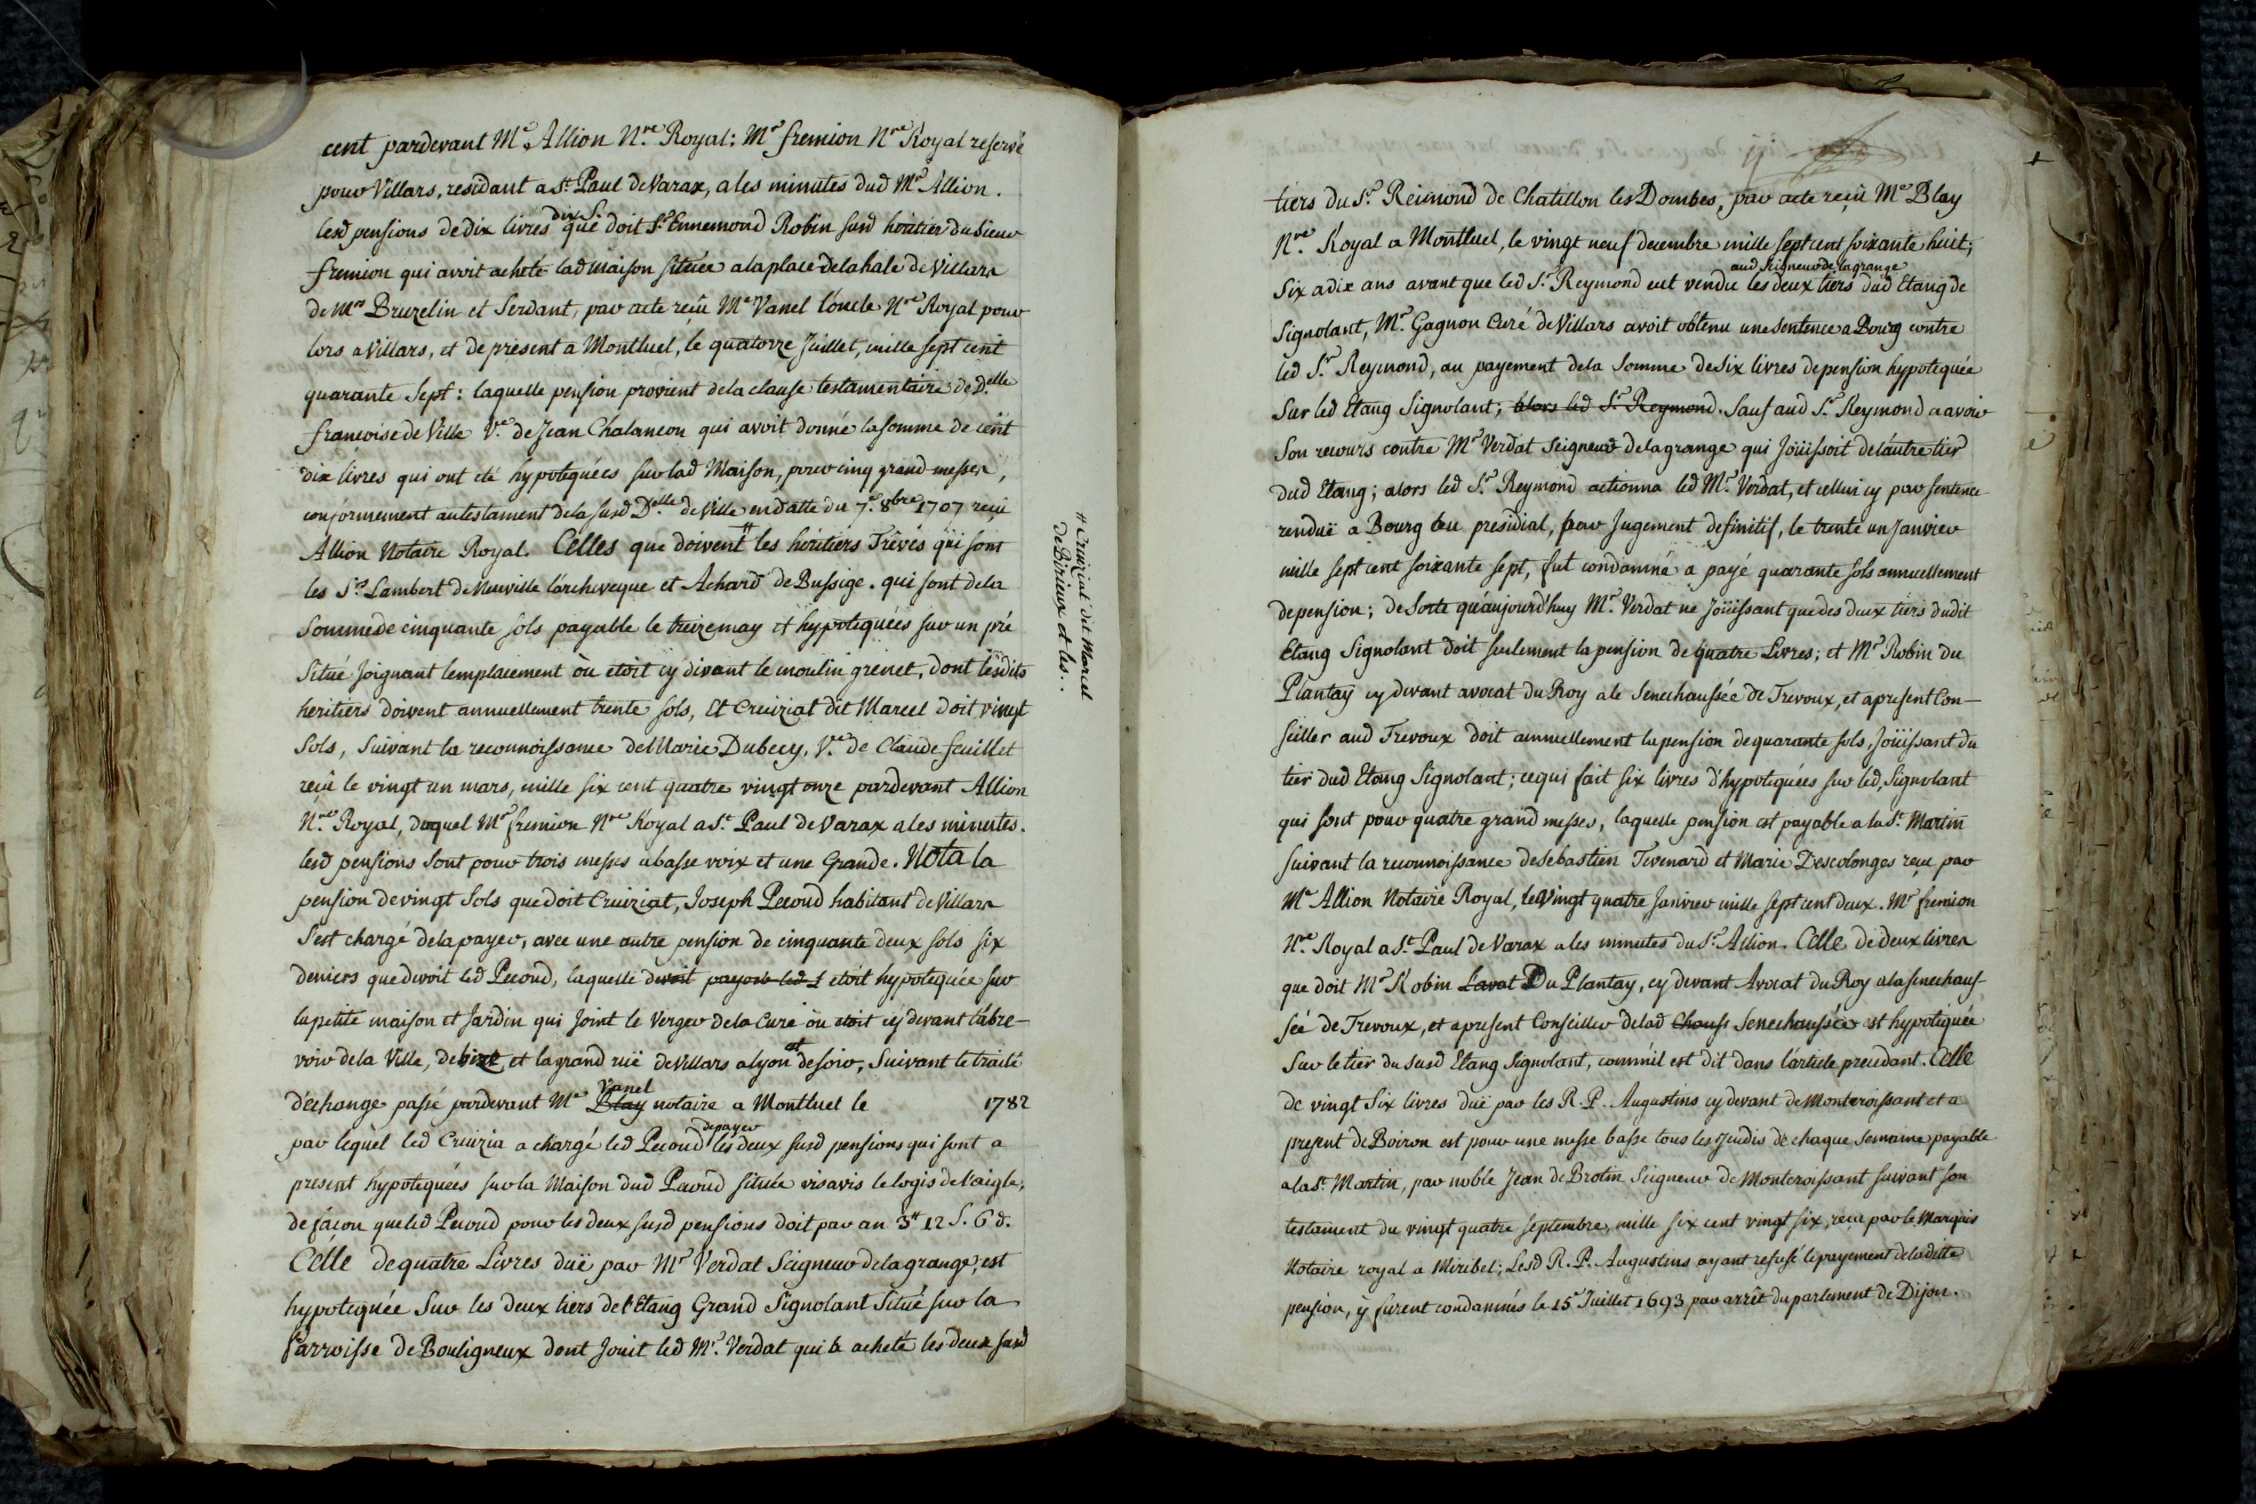 cent pardevant Me Allion Nre Royal: Mr fremion Nre Royal reservé
pour Villars, residant a St Paul de Varax, a les minutes dud Mr Allion.
lesd pensions de dix livres dix S. que doit Sr Ennemond Robin susd héritier du Sieur
fremion qui avoit acheté lad maison située a la place de la hale de Villars
de Mrs Bruzelin et Serdant, par acte reçû Me Vanel l'oncle Nre Royal pour
lors a Villars, et de présent a Montluel, le quatorze Juillet, mille sept cent
quarante Sept: laquelle pension provient de la clause testamentaire de Delle
francoise de Ville Ve de Jean Chalancon qui avoit donné la somme de cent
dix livres qui ont eté hypotequées sur lad Maison, pour cinq grand-messes,
conformement au testament de la susd Delle de Ville en datte du 7e 8bre 1707 reçu
Allion Notaire Royal. Celles que doivent # les héritiers Trêves qui sont
les Srs Lambert de Neuville l'archeveque et Achard de Bussige. qui sont de la
Somme de cinquante sols payable le treize may et hypotequées sur un pré
Situé Joignant l'emplacement où etoit cy devant le moulin grenet, dont lesdits
heritiers doivent annuellement trente sols, Et Creuziat dit Marcel doit vingt
Sols, Suivant la reconnoissance de Marie Dubecy, Ve de Claude feuillet
reçû le vingt un mars, mille six cent quatre vingt onze pardevant Allion
Nre Royal, duquel Mr fremion Nre Royal a St Paul de Varax a les minutes.
lesd pensions sont pour trois messes a basse voix et une Grande. Nota la
pension de vingt Sols que doit Cruiziat, Joseph Pecoud habitant de Villars
S'est chargé de la payer, avec une autre pension de cinquante deux sols six
deniers que devoit led Pecoud, laquelle devoit payer led S etoit hypotequée sur
la petite maison et Jardin qui Joint le Verger de la Cure où etoit cy devant l'abre-
voir de la Ville, de bize, et la grand ruë de Villars a lyon et de soir, Suivant le traité
d'echange passé pardevant Me Blay Vanel notaire a Montluel le 1782
par lequel led Cruizia a chargé led Pecoud de payer les deux susd pensions qui sont a
present hypotequées sur la Maison dud Pecoud située vis a vis le logis de l'aigle,
de façon que led Pecoud pour les deux susd pensions doit par an 3tt 12 S. 6 d.
Celle de quatre Livres duë par Mr Verdat Seigneur de la grange, est
hypotequée Sur les deux tiers de l'Etang Grand Signolant Situé sur la
Parroisse de Bouligneux dont Jouit led Mr Verdat qui a acheté les deux susd
# Cruiziat dit Marcel
De Birieux et les..
tiers du Sr Reimond de Chatillon les Dombes, par acte reçû Me Blay
Nre Royal a Montluel, le vingt neuf decembre mille sept cent soixante huit;
Six a dix ans avant que led Sr Reymond eut vendu aud Seigneur de la grange les deux tiers dud Etang de
Signolant, Mr Gagnon Curé de Villars avoit obtenu une Sentence a Bourg contre
led Sr Reymond, au payement de la Somme de Six livres de pension hypotequée
Sur led Etang Signolant; alors led Sr Reymond. Sauf aud Sr Reymond a avoir
Son recours contre Mr Verdat Seigneur de la grange qui Joüissoit de l'autre tier
dud Etang; alors led Sr Reymond actionna led Mr Verdat, et cellui cy par sentence
renduë a Bourg au presidial, par Jugement definitif, le trente un Janvier
mille sept cent soixante sept, fut condamné a payé quarante sols annuellement
de pension; de sorte qu'aujourd'huy Mr Verdat ne Joüissant que des deux tiers dudit
Etang Signolant doit seulement la pension de quatre Livres; et Mr Robin du
Plantay cy devant avocat du Roy a le Senechaussée de Trevoux, et apresent Con-
seiller aud Trévoux doit annuellement la pension de quarante sols, Joüissant du
tier dud Etang Signolant; ce qui fait six livres d'hypotequées sur led Signolant
qui sont pour quatre grand messes, laquelle pension est payable a la St Martin
suivant la reconnoissance de Sebastien Tevenard et Marie Descolonges reçu par
Me Allion Notaire Royal, le vingt quatre Janvier mille sept cent deux. Mr fremion
Nre Royal a St Paul de Varax a les minutes du Sr Allion. Celle de deux livres
que doit Mr Robin L'avat Du Plantay, cy devant Avocat du Roy a la senechaus-
sée de Trevoux, et apresent Conseiller de lad Chauss Senechaussée est hypotequée
Sur le tier du susd Etang Signolant, comm'il est dit dans l'article precedant. Celle
de vingt Six livres duë par les R. P. Augustins cy devant de Montcroissant et a
present de Boiron est pour une messe basse tous les Jeudis de chaque Semaine payable
a la St Martin, par noble Jean de Brotin Seigneur de Montcroissant suivant son
testament du vingt quatre septembre, mille six cent vingt six, reçu par le Marquis
Notaire royal a Miribel; Lesd R. P. Augustins ayant refusé le payement de la ditte
pension, y furent condamnés le 15e Juillet 1693 par arrêt du parlement de Dijon.